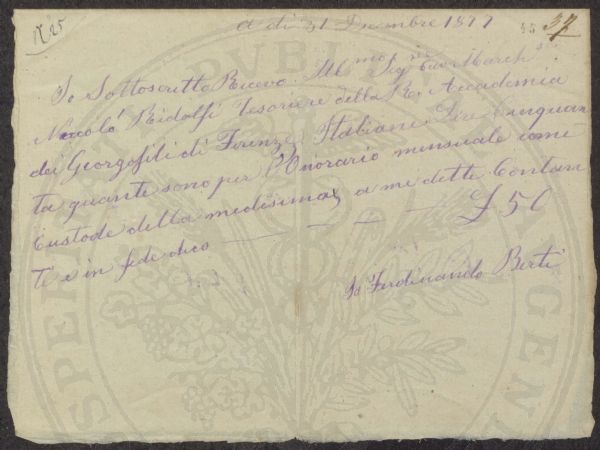 N. 25
A dì 31 Dicembre 1877
45 37
Io Sottoscritto Ricevo. Ill.mo Sig.re Cav. March.se
Niccoló Ridolfi Tesoriere della R. Accademia
dei Georgofili di Firenze Italiane Lire Cinquan
ta quante sono per l'Onorario mensuale come
Custode della medesima, a me dette Contan
ti e in fede dico — — — — £ 50
Io Ferdinando Berti